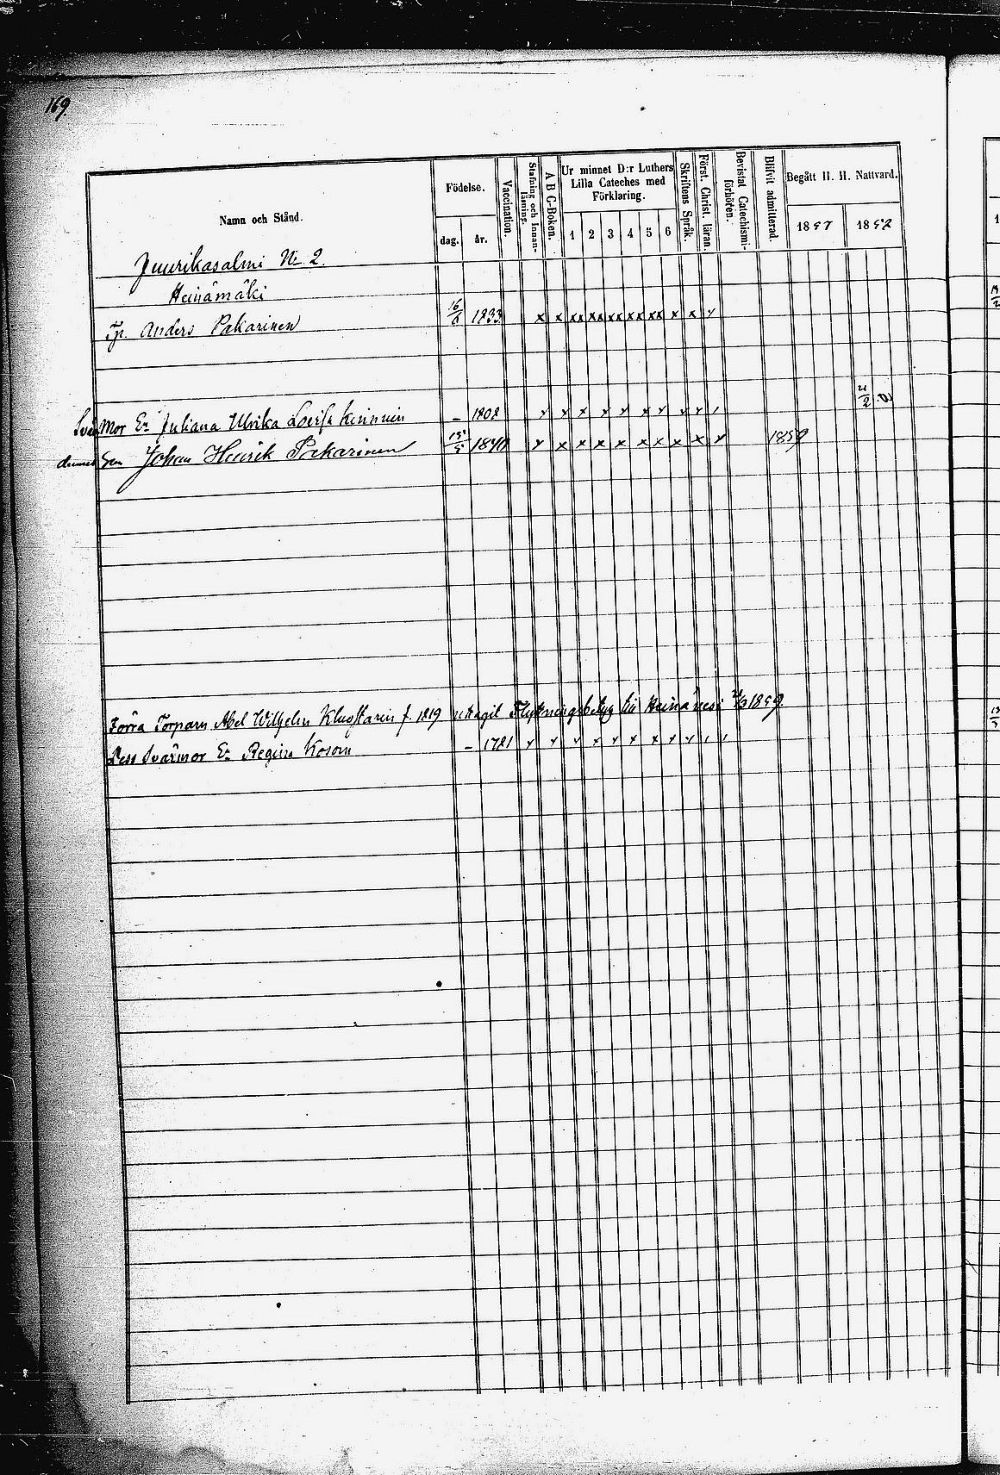 169
Namn och Stånd.
Födelse.
dag.
år.
Vaccination.
Stafning och Innanläsning.
A B C-Boken.
Ur minnet D:r Luthers Lilla Cateches med Förklaring.
1 2 3 4 5 6
Skriftens Språk.
Först. Christ. läran.
Bevistat Catechismiförhören.
Blifvit admitterad.
Begått H. H. Nattvard.
1857 1858
Juurikasalmi No 2.
Heinämäki
Tp. Anders Pakarinen 16/6 1833 x x xx xx xx xx xx x x x
Mor Ea Juliana Ulrika Lovisa - 1802 21/2
Son Johan Henrik Pakarinen 1840 x x x x x x x x x x 1859
Förra Torparn Abel Wilhelm f. 1819 uttagit Flyttningsbetyg till 1859.
Dess Svärmor Ea Regina Kosonen - 1781